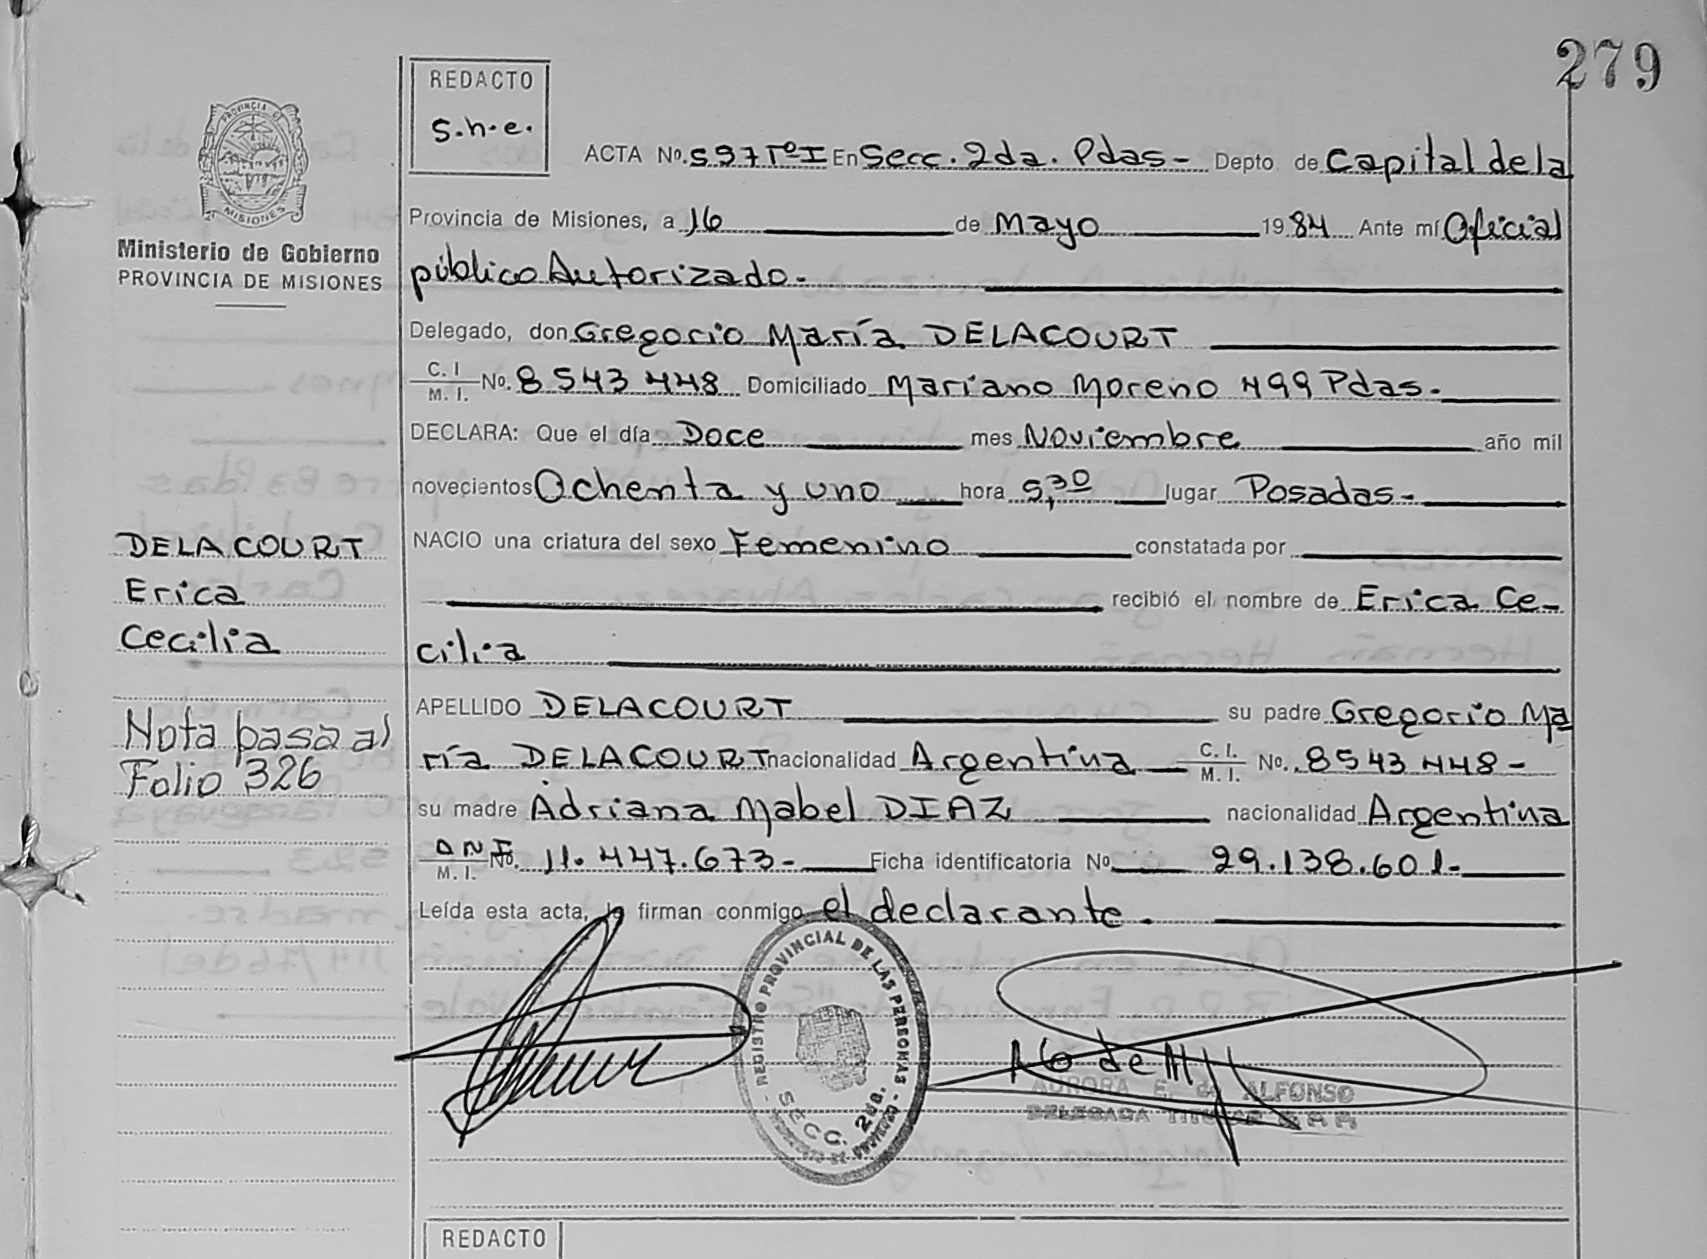 279
REDACTO
s.h.e.
PROVINCIA DE MISIONES
Ministerio de Gobierno
PROVINCIA DE MISIONES
ACTA No. 597 Tº I En Secc. 2da. Pdas - Depto de Capital de la
Provincia de Misiones, a 16 de Mayo 1984 Ante mí Oficial
público Autorizado.
Delegado, don Gregorio María DELACOURT
C. I. / M. I. No. 8543448 Domiciliado Mariano Moreno 499 Pdas.
DECLARA: Que el día Doce mes Noviembre año mil
novecientos Ochenta y uno hora 5,30 lugar Posadas -
NACIO una criatura del sexo Femenino constatada por
recibió el nombre de Erica Ce-
cilia
DELACOURT
Erica
Cecilia
Nota pasa al
Folio 326
APELLIDO DELACOURT su padre Gregorio Ma
ría DELACOURT nacionalidad Argentina C. I. / M. I. No. 8543448 -
su madre Adriana Mabel DIAZ nacionalidad Argentina
DNI / M. I. No. 11.447.673 - Ficha identificatoria No 29.138.601 -
Leída esta acta, la firman conmigo el declarante.
REGISTRO PROVINCIAL DE LAS PERSONAS
SECC. 2da.
AURORA E. de ALFONSO
DELEGADA TITULAR
REDACTO